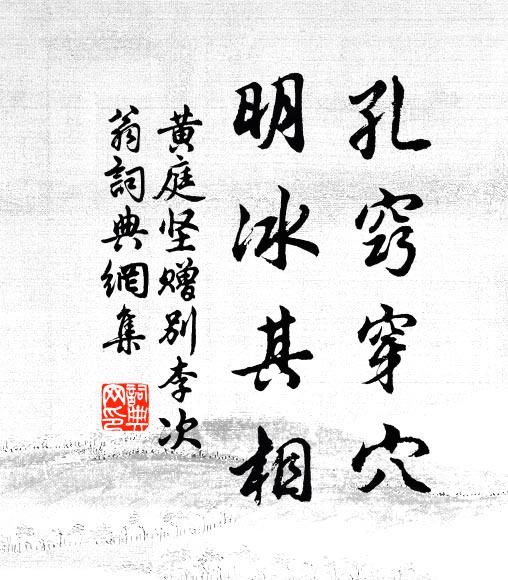 孔窍穿穴
明冰其相
黄庭坚赠别李次
翁詞典網集
詞典
网印